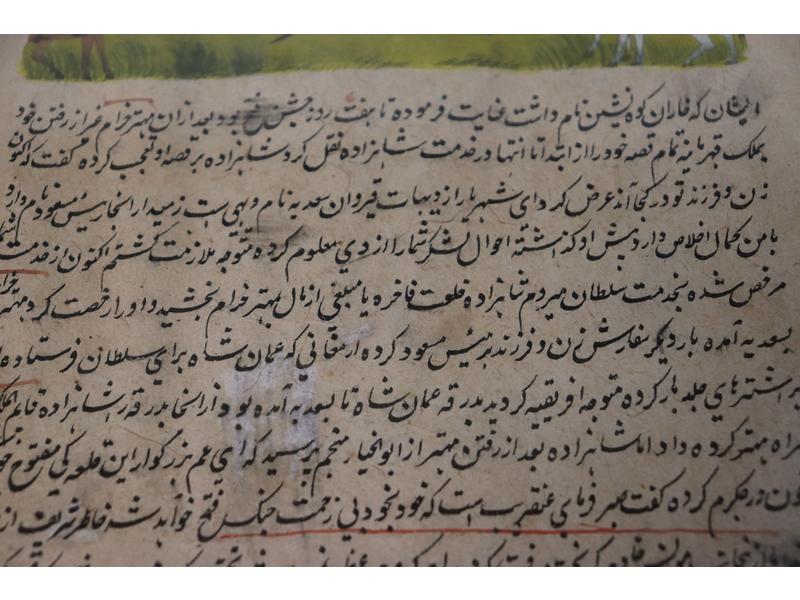 ایشان که فاران کوه نشین نام داشت عنایت فرموده تا هفت روز جشن فتح بود بعد ازان مهتر خرام خبر از رفتن خود
بملک قهرمانیه تمام قصه خود را از ابتدا تا انتها در خدمت شاهزاده نقل کرد شاهزاده بر قصه او تعجب کرده گفت که اکنون
زن و فرزند تو در کجا اند عرض کرد ای شهریار از دیهات قیروان سعدیه نام دیهی است زمیندار انجا رئیس مسعود نام دارد و
با من کمال اخلاص دارد پیش او گذاشته احوال لشکر شما را از وی معلوم کرده متوجه ملازمت گشتم اکنون از خدمت شما
مرخص شده بخدمت سلطان میروم شاهزاده خلعت فاخره با مبلغی از مال بمهتر خرام بخشید و او را رخصت کرد مهتر خرام
بسعدیه آمده بار دیگر سفارش زن و فرزند برئیس مسعود کرده ارمغانی که عمان شاه برای سلطان فرستاده
بر اشترهای جلد بار کرده متوجه افریقیه گردید بدرقه عمان شاه تا بسعدیه آمده بود از انجا بدرقه شاهزاده قایم الملک
همراه مهتر کرده داد اما شاهزاده بعد از رفتن مهتر از ابوالخیار منجم پرسید که ای عم بزرگوار این قلعه کی مفتوح
کرده گفت صبر فرمای عنقریب است که خود بخود بی زحمت جنگ فتح خواهد شد خاطر شریف از